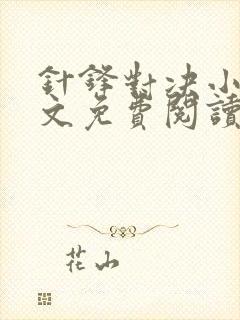 針鋒對决小
文免費閱讀
花山